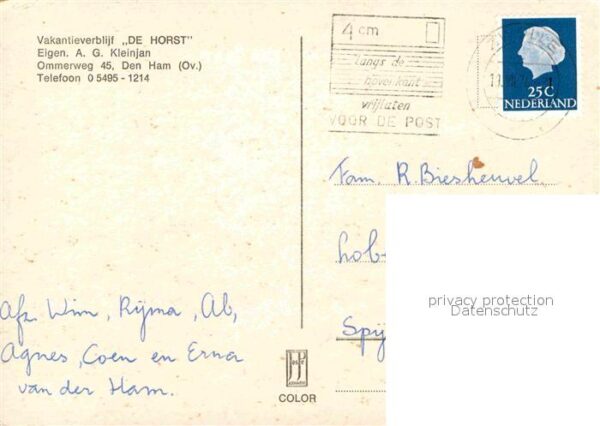 Vakantieverblijf „DE HORST"
Eigen. A. G. Kleinjan
Ommerweg 45, Den Ham (Ov.)
Telefoon 0 5495 - 1214
4 cm
langs de
bovenkant
vrijlaten
VOOR DE POST
25 C
NEDERLAND
Fam. R. Biesheuvel
hob-
Spij
privacy protection
Datenschutz
Afz. Wim, Rijma, Ab,
Agnes, Coen en Erna
van der Ham.
COLOR